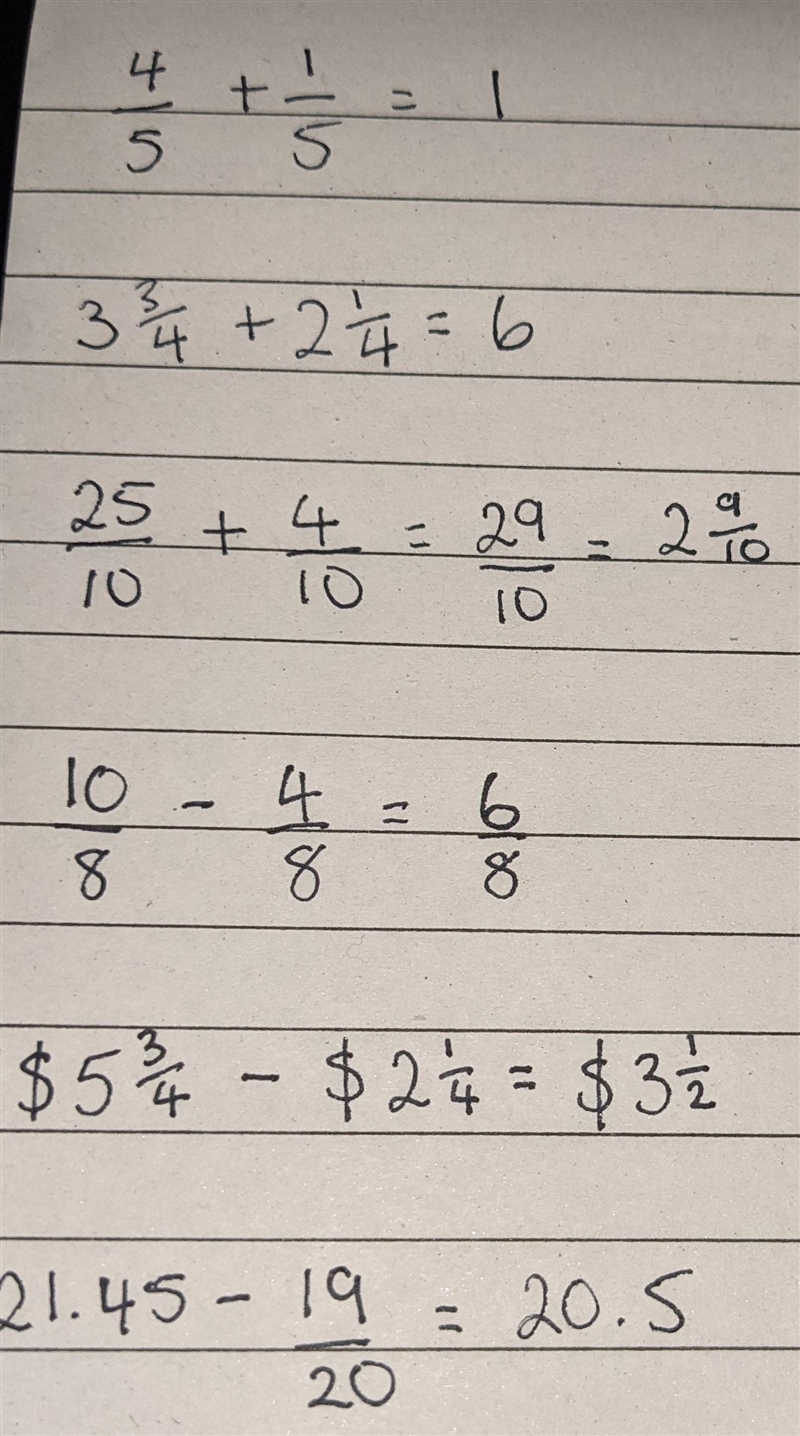 4/5 + 1/5 = 1
3 3/4 + 2 1/4 = 6
25/10 + 4/10 = 29/10 = 2 9/10
10/8 - 4/8 = 6/8
$5 3/4 - $2 1/4 = $3 1/2
21.45 - 19/20 = 20.5